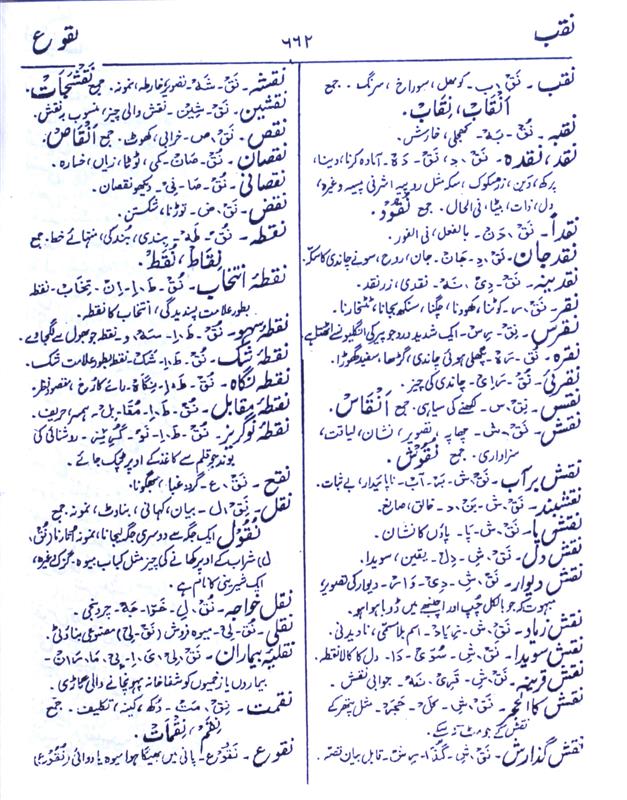 نقب
۶۶۲
نقوع
نقب ۔ نَقْ ۔ ب ۔ کومھل، سوراخ، سرنگ ۔ جمع
اَنْقَاب، نِقَاب۔
نقبہ ۔ نُقْ ۔ بَہ ۔ کھجلی، خارش۔
نقد، نقدہ ۔ نَقْ ۔ د، نَقْ ۔ دَہ ۔ آمادہ کرنا، دینا،
پرکھ، دَین، زر مسکوک، سکہ مثل روپیہ اشرفی پیسہ وغیرہ،
دل، ذات، بیٹا، فی الحال ۔ جمع نُقُود۔
نقداً ۔ نَقْ ۔ دَنْ ۔ بالفعل، فی الفور۔
نقد جان ۔ نَقْ ۔ دِ ۔ جَان ۔ جان، روح، سونے چاندی کا سکہ۔
نقدینہ ۔ نَقْ ۔ دِیْ ۔ نَہ ۔ نقدی، زر نقد۔
نقر ۔ نَقْ ۔ ر ۔ کوٹنا، کھودنا، چگنا، سنکھ بجانا، ٹٹخارنا۔
نقرس ۔ نِقْ ۔ رِس ۔ ایک شدید درد جو پیر کی انگلیوں سے اٹھتا ہے
نقرہ ۔ نُقْ ۔ رَہ ۔ پگھلی ہوئی چاندی، گڑھا، سفید گھوڑا۔
نقرئی ۔ نُقْ ۔ رَ ۔ ئِ ۔ چاندی کی چیز۔
نقس ۔ نِقْ ۔ س ۔ لکھنے کی سیاہی ۔ جمع اَنْقَاس۔
نقش ۔ نَقْ ۔ ش ۔ چھاپہ، تصویر، نشان، لیاقت،
سزاواری ۔ جمع نُقُوش۔
نقش بر آب ۔ نَقْ ۔ ش ۔ بَر ۔ آب ۔ ناپائیدار، بے ثبات۔
نقشبند ۔ نَقْ ۔ ش ۔ بَنْ ۔ د ۔ خالق، صانع۔
نقش پا ۔ نَقْ ۔ شِ ۔ پا ۔ پاؤں کا نشان۔
نقش دل ۔ نَقْ ۔ شِ ۔ دِل ۔ یقین، سویدا۔
نقش دیوار ۔ نَقْ ۔ شِ ۔ دِیْ ۔ وَار ۔ دیوار کی تصویر،
مبہوت کہ جو بالکل چپ اور اچنبھے میں ڈوبا ہوا ہو۔
نقش زیاد ۔ نَقْ ۔ شِ ۔ زِیَاد ۔ اسم بلا مسمی، نادیدنی۔
نقش سویدا ۔ نَقْ ۔ شِ ۔ سُوَیْ ۔ دَا ۔ دل کا کالا نقطہ۔
نقش قرینہ ۔ نَقْ ۔ شِ ۔ قَرِیْ ۔ نَہ ۔ جوابی نقش۔
نقش کالحجر ۔ نَقْ ۔ ش ۔ کَل ۔ حَجَر ۔ مثل پتھر کے
نقش کے جو مٹ نہ سکے۔
نقش گذارش ۔ نَقْ ۔ شِ ۔ گُذَا ۔ رِش ۔ قابل بیان قصہ۔
نقشہ ۔ نَقْ ۔ شَہ ۔ تصویر، خارطہ، نمونہ ۔ جمع نَقْشَجَات۔
نقشین ۔ نَقْ ۔ شِیْن ۔ نقش والی چیز، منسوب بہ نقش۔
نقص ۔ نَقْ ۔ ص ۔ خرابی، کھوٹ ۔ جمع اَنْقَاص۔
نقصان ۔ نُقْ ۔ صَان ۔ کمی، ٹوٹا، زیاں، خسارہ۔
نقصانی ۔ نُقْ ۔ صَا ۔ نِیْ ۔ دیکھو نقصان۔
نقض ۔ نَقْ ۔ ض ۔ توڑنا، شکستن۔
نقطہ ۔ نُقْ ۔ طَہ ۔ بندی، بُندکی، منتہائے خط ۔ جمع
نِقَاط، نُقَط۔
نقطۂ انتخاب ۔ نُقْ ۔ طَ ۔ اِ ۔ اِنْ ۔ تِخَاب ۔ نقطہ
بطور علامت پسندیدگی، انتخاب کا نقطہ۔
نقطۂ سہو ۔ نُقْ ۔ طَ ۔ اِ ۔ سَہ ۔ و ۔ نقطہ جو بھول سے لگ جاوے۔
نقطۂ شک ۔ نُقْ ۔ طَ ۔ اِ ۔ شَک ۔ نقطہ بطور علامت شک۔
نقطۂ نگاہ ۔ نُقْ ۔ طَ ۔ اِ ۔ نِگَاہ ۔ رائے کا رخ، مقصود نظر۔
نقطۂ مقابل ۔ نُقْ ۔ طَ ۔ اِ ۔ مُقَا ۔ بِل ۔ ہمسر، حریف۔
نقطۂ نوگریز ۔ نُقْ ۔ طَ ۔ اِ ۔ نَو ۔ گُرِیْز ۔ روشنائی کی
بوند جو قلم سے کاغذ کے اوپر ٹپک جائے۔
نقع ۔ نَقْ ۔ ع ۔ گرد و غبار، بھگونا۔
نقل ۔ نَقْ ۔ ل ۔ بیان، کہانی، بناوٹ، نمونہ ۔ جمع
نُقُول ایک جگہ سے دوسری جگہ لیجانا، نمونہ اتارنا، (نُقْ۔
ل) شراب کے اوپر کھانے کی چیز مثل کباب میوہ، گزک وغیرہ،
ایک شیرینی کا نام ہے۔
نقل خواجہ ۔ نُقْ ۔ لِ ۔ خَوَا ۔ جَہ ۔ چرونجی۔
نقلی ۔ نُقْ ۔ لِیْ ۔ میوہ فروش (نَقْ ۔ لِیْ) مصنوعی بناوٹی۔
نقلیۂ بیماران ۔ نَقْ ۔ لِی ۔ یَ ۔ اِ ۔ بِیْ ۔ مَا ۔ رَان ۔
بیماروں یا زخمیوں کو شفاخانہ پہونچانے والی گاڑی۔
نقمت ۔ نِقْ ۔ مَت ۔ دکھ، کینہ، تکلیف ۔ جمع
نِقَم، نِقْمَات۔
نقوع ۔ نَقُوْع ۔ پانی میں بھیگا ہوا میوہ یا دوائی (نُقُوْع)